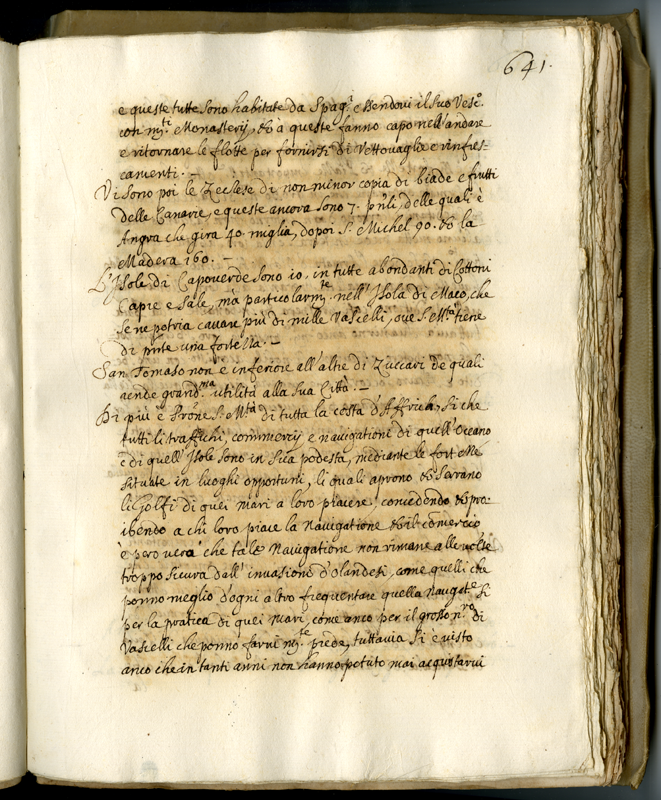 641.
e queste tutte sono habitate da Spag.i e Bendoui il suo Vesc.o
con m.ti Monasterij, et a queste fanno capo nell'andare
e ritornare le flotte per fornirsi di Vettouaglie e rinfres-
camenti. -
Vi sono poi le Terzere di non minor copia di biade e frutti
delle Canarie, e queste ancora sono 7. pnli delle quali è
Angra che gira 40. miglia, dopoi S. Michel 90. et la
Madera 160. -
L'Isole di Capouerde sono 10. in tutte abondanti di Cottoni
Capre e Sale, ma particolarm.te nell'Isola di Maeo, che
se ne potria cauare più di mille Vascelli, oue S. M.tà tiene
di pnte una fortezza. -
San Tomaso non è inferiore all'altre di Zuccari de quali
rende grand.ma utilità alla sua Città. -
Di più è Prone S. M.tà di tutta la costa d'Affrica, si che
tutti li traffichi, commercij e nauigationi di quell'Oceano
e di quell'Isole sono in sua podestà, mediante le fortezze
situate in luoghi opportuni, li quali aprono et serrano
li Golfi di quei mari a loro piacere, concedendo et pro-
ibendo a chi loro piace la Nauigatione et il comercio
è pero uero che tale Nauigatione non rimane alle uolte
troppo sicura dall'inuasioni d'Olandesi, come quelli che
ponno meglio d'ogni altro frequentare quella Nauigat.e si
per la pratica di quei mari, come anco per il grosso n.ro di
Vascelli che ponno farui m.te piede, tuttauia si è uisto
anco che in tanti anni non hanno potuto mai acquistarui